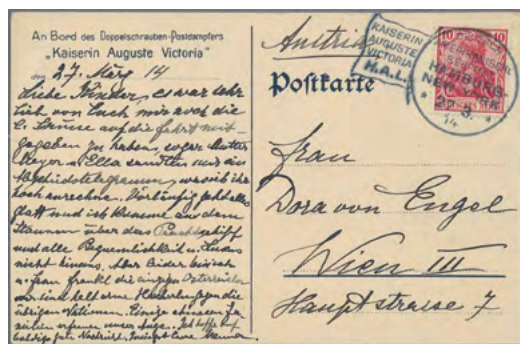 An Bord des Doppelschrauben-Postdampfers
„Kaiserin Auguste Victoria"
den 27. März 14
Liebe Kinder, es war sehr
lieb von Euch mir noch die
auf die Fahrt mit-
gegeben zu haben, sogar Mutter
Meyer u. Ella sandten mir ein
Abschiedstelegramm, was ich ihr
hoch anrechne. Vorläufig geht alles
glatt und ich komme aus dem
Staunen über das Prachtschiff
und alle Bequemlichkeit u. Luxus
nicht hinaus. Aber leider bin ich
u. Frau Frankl die einzigen Österreicher
übrigen Nationen. Einige
unser Auge. Ich hoffe auf
baldige gute Nachricht.
Austria
KAISERIN
AUGUSTE
VICTORIA
H.A.L.
10
HAMBURG-
NEW YORK
14
Postkarte
Frau
Dora von Engel
Wien III
Hauptstrasse 7